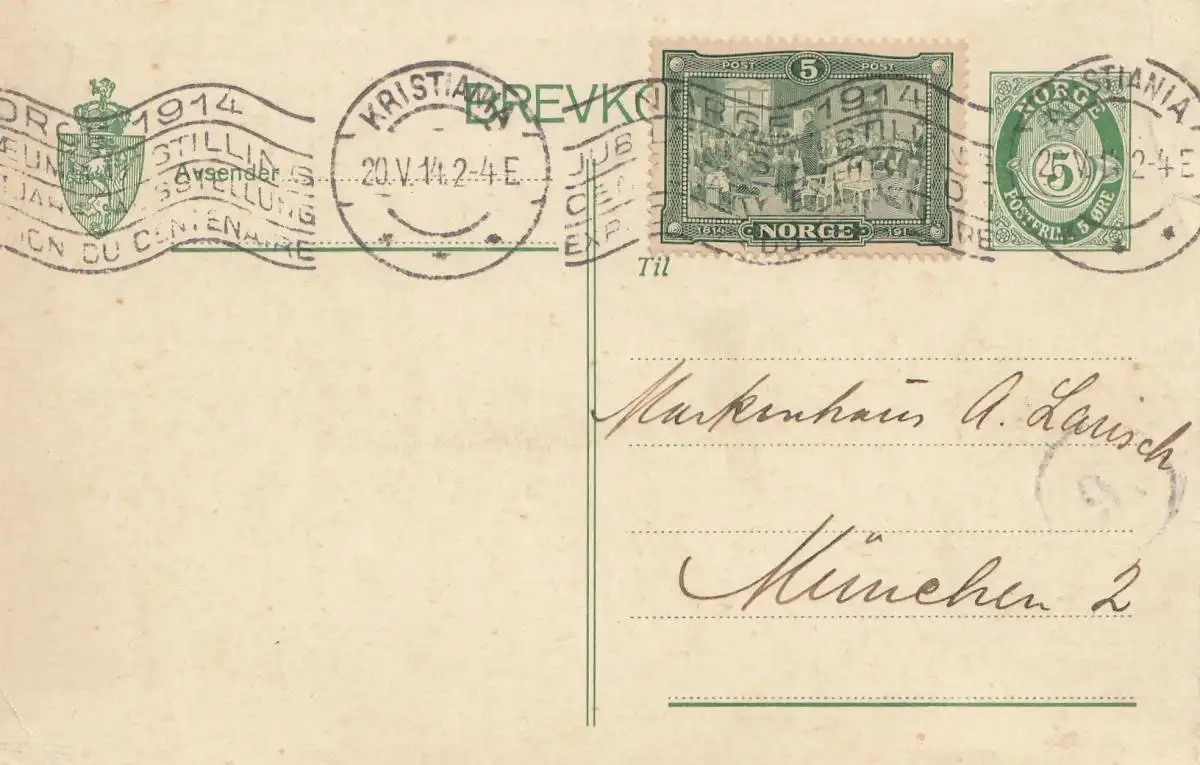 NORGE 1914
JUBILÆUMSUDSTILLING
AUSSTELLUNG
EXPOSITION DU CENTENAIRE
KRISTIANIA
20.V.14.2-4 E
BREVKO
Avsender
POST 5 POST
NORGE
1814 191
NORGE
5
POSTFRIM. 5 ØRE
STIANIA
2-4 E
Til
Markenhaus A. Lausch
München 2